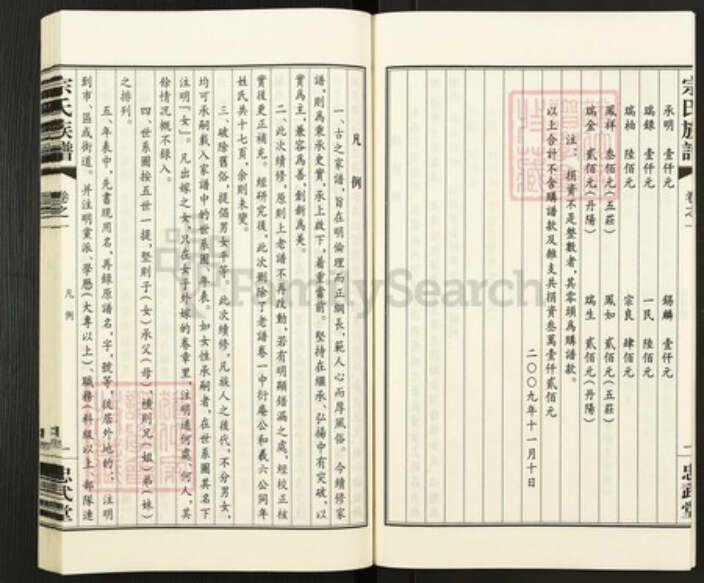 宗氏族譜 卷之一 一 忠武堂
承明 壹仟元 錫麟 壹仟元
瑞錄 壹仟元 一民 陸佰元
瑞柏 陸佰元 宗良 肆佰元
鳳祥 叁佰元(五莊) 鳳如 貳佰元(五莊)
瑞金 貳佰元(丹陽) 瑞生 貳佰元(丹陽)
注：捐資不足整數者，其零頭為購譜款。
以上合計不含購譜款及雜支共捐資叁萬壹仟貳佰元
二〇〇九年十一月十日
凡例
一、古之家譜，旨在明倫理而正綱長，範人心而厚風俗。今續修家
譜，則為秉承史實，承上啟下，着重當前。堅持在繼承、弘揚中有突破，以
實為主，兼容為善，創新為美。
二、此次續修，原則上老譜不再改動，若有明顯錯漏之處，經校正核
實後更正補充。經研究後，此次刪除了老譜卷一中衍慶公和義六公同年
姓氏共十七頁，余則未變。
三、破除舊俗，提倡男女平等。此次續修，凡族人之後代，不分男女，
均可承嗣載入家譜中的世系圖、年表。如女性承嗣者，在世系圖其名下
注明「女」。凡出嫁之女，只在女子外嫁的卷章里，注明適何處、何人，其
餘情況概不錄入。
四、世系圖按五世一提，豎則子(女)承父(母)，橫則兄(姐)弟(妹)
之排列。
五、年表中，先書現用名，再錄原譜名，字，號等，後居外地的，注明
到市、區或街道。并注明黨派、學歷(大專以上)、職務(科級以上、部隊連
宗氏族譜 卷之一 凡例 一 忠武堂
FamilySearch